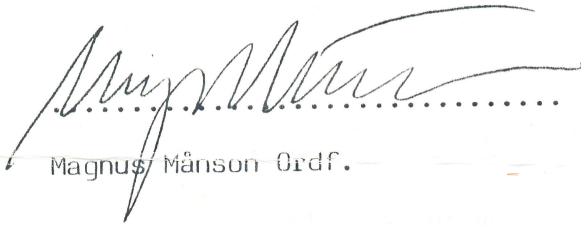 Magnus Månson Ordf.